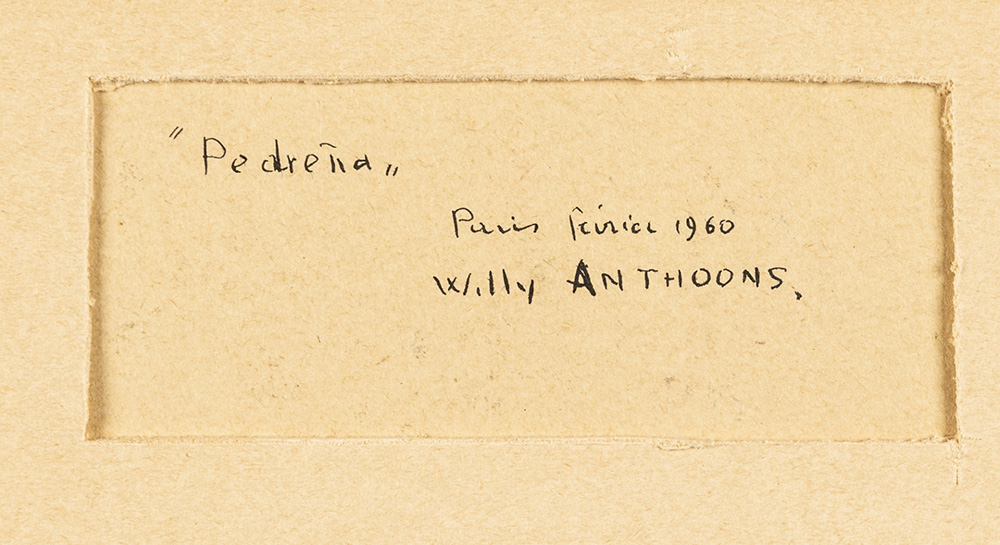 "Pedreña„
Paris février 1960
Willy ANTHOONS.